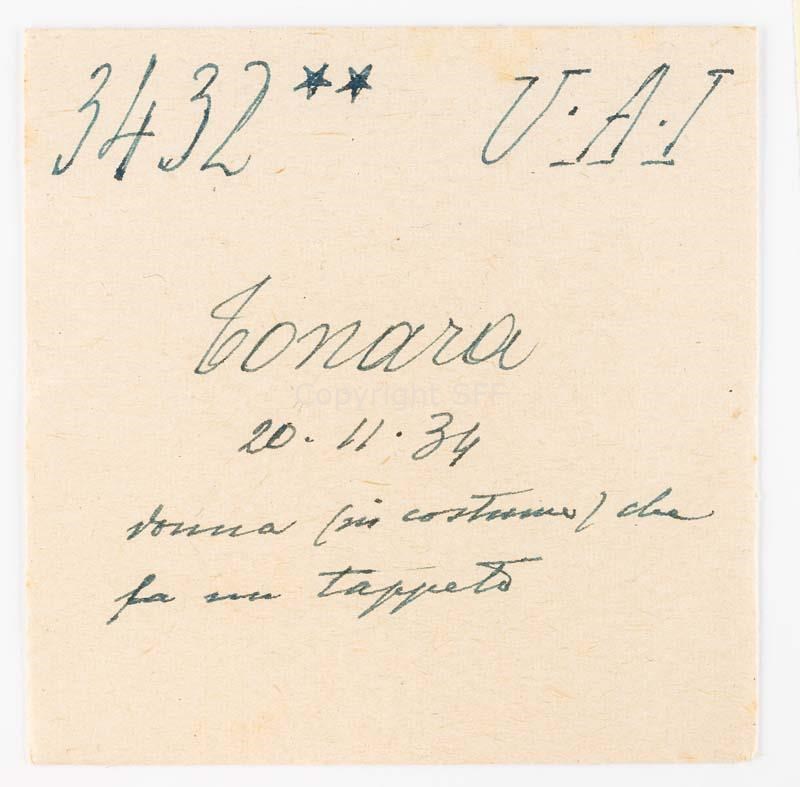 3432** V.A.I
Tonara
Copyright SFF
20.11.34
donna (in costume) che
fa un tappeto